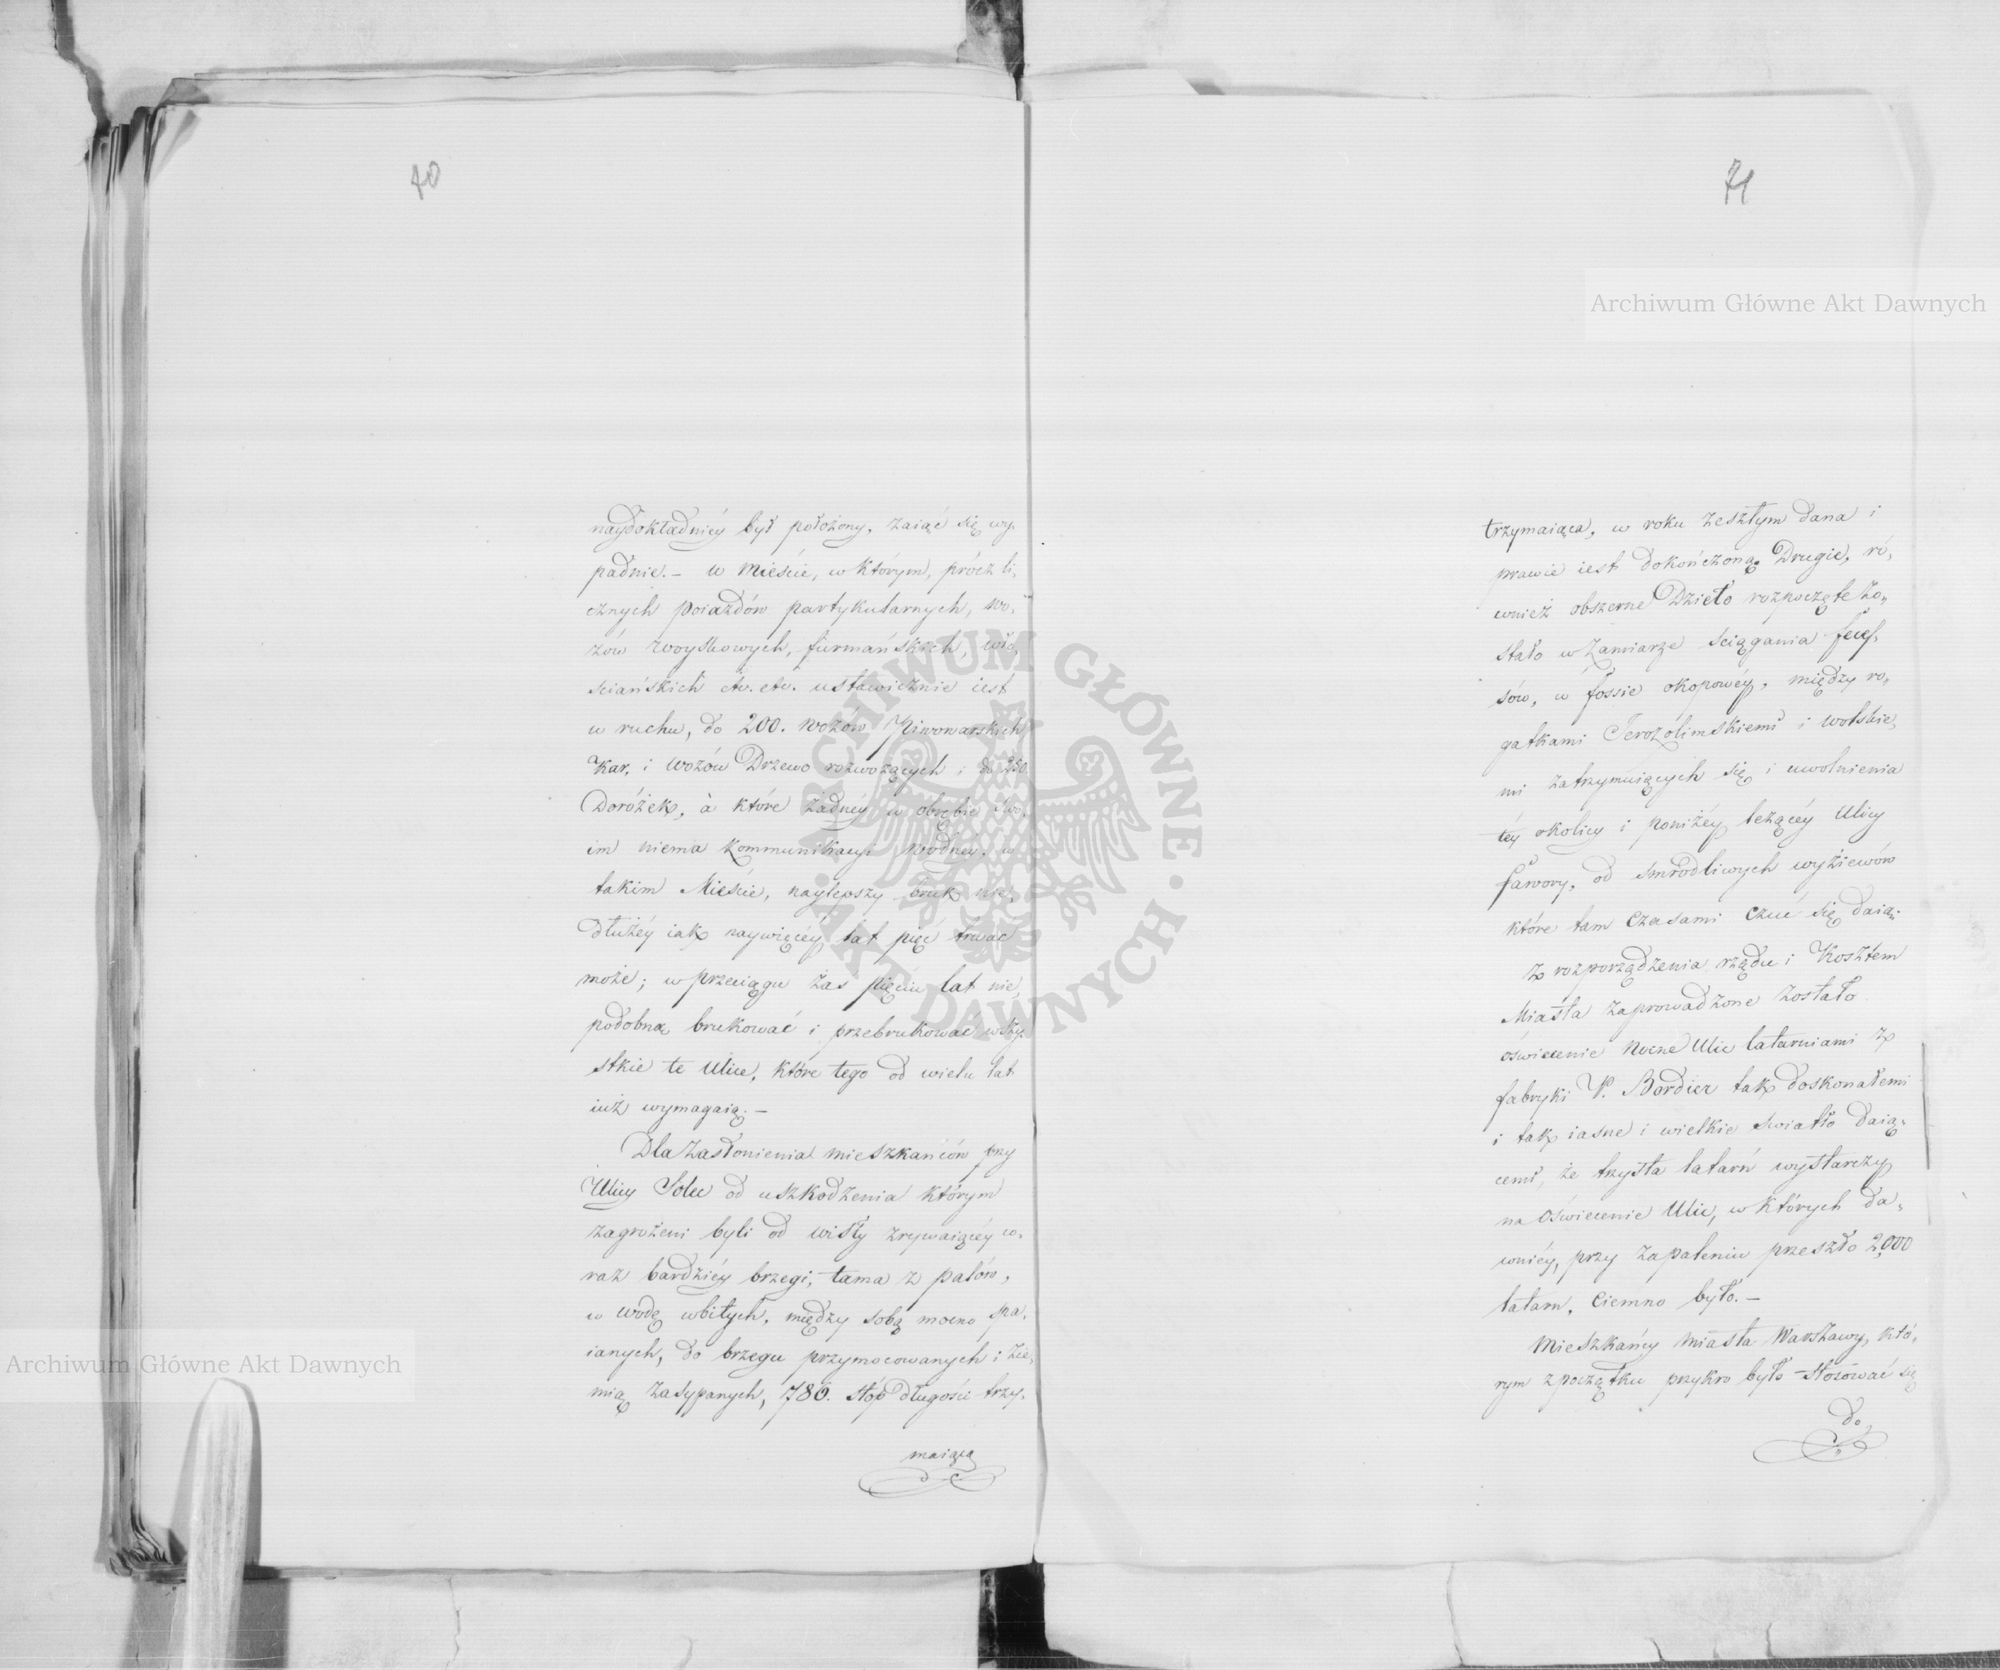 70
naydokładniéy był położony, zaiąć się wy-
padnie. — w Mieście, w którym, prócz li-
cznych poiazdów partykularnych, wo-
zów woyskowych, furmańskich, wło-
sciańskich etc. etc. ustawicznie iest
w ruchu, do 200. wozów Piwowarskich
Kar, i wozów Drzewo rozwożących i do 250
Dorożek, à które żadnéy w obrębie swo-
im niema kommunikacyi wodnéy, w
takim Mieście, naylepszy bruk nie
dłużéy iak naywięcéy lat pięć trwać
może; w przeciągu zaś pięciu lat nie-
podobna brukować i przebrukować wszy-
stkie te Ulice, które tego od wielu lat
iuż wymagaią. —
Dla zasłonienia mieszkańców przy
Ulicy Solec od uszkodzenia którym
zagrożeni byli od wisły zrywaiącéy co-
raz bardziéy brzegi, tama z palów,
w wodę wbitych, między sobą mocno spa-
ianych, do brzegu przymocowanych i zie-
mią zasypanych, 786. stop długości trzy-
maiąca
71
trzymaiąca, w roku zeszłym dana i
prawie iest dokończoną. Drugie, ró-
wnież obszerne Dzieło rozpoczęte zo-
stało w zamiarze sciągania feces-
sów, w fossie okopowéy, między ro-
gatkami Jerozolimskiemi i wolskie-
mi zatrzymuiących się i uwolnienia
téy okolicy i poniżéy leżącéy Ulicy
fawory, od smrodliwych wyziewów
które tam czasami czuć się daią.
z rozporządzenia rządu i Kosztem
Miasta zaprowadzone zostało
oświecenie Nocne Ulic latarniami z
fabryki P. Bordier tak doskonałemi
i tak iasne i wielkie swiatło daią-
cemi, że trzysta latarń wystarczy
na Oświecenie Ulic, w których da-
wniéy, przy zapaleniu przeszło 2,000
latarn, Ciemno było. —
Mieszkańcy miasta Warszawy, któ-
rym z początku przykro było stosować się
do
Archiwum Główne Akt Dawnych
Archiwum Główne Akt Dawnych
ARCHIWUM GŁÓWNE · AKT DAWNYCH ·